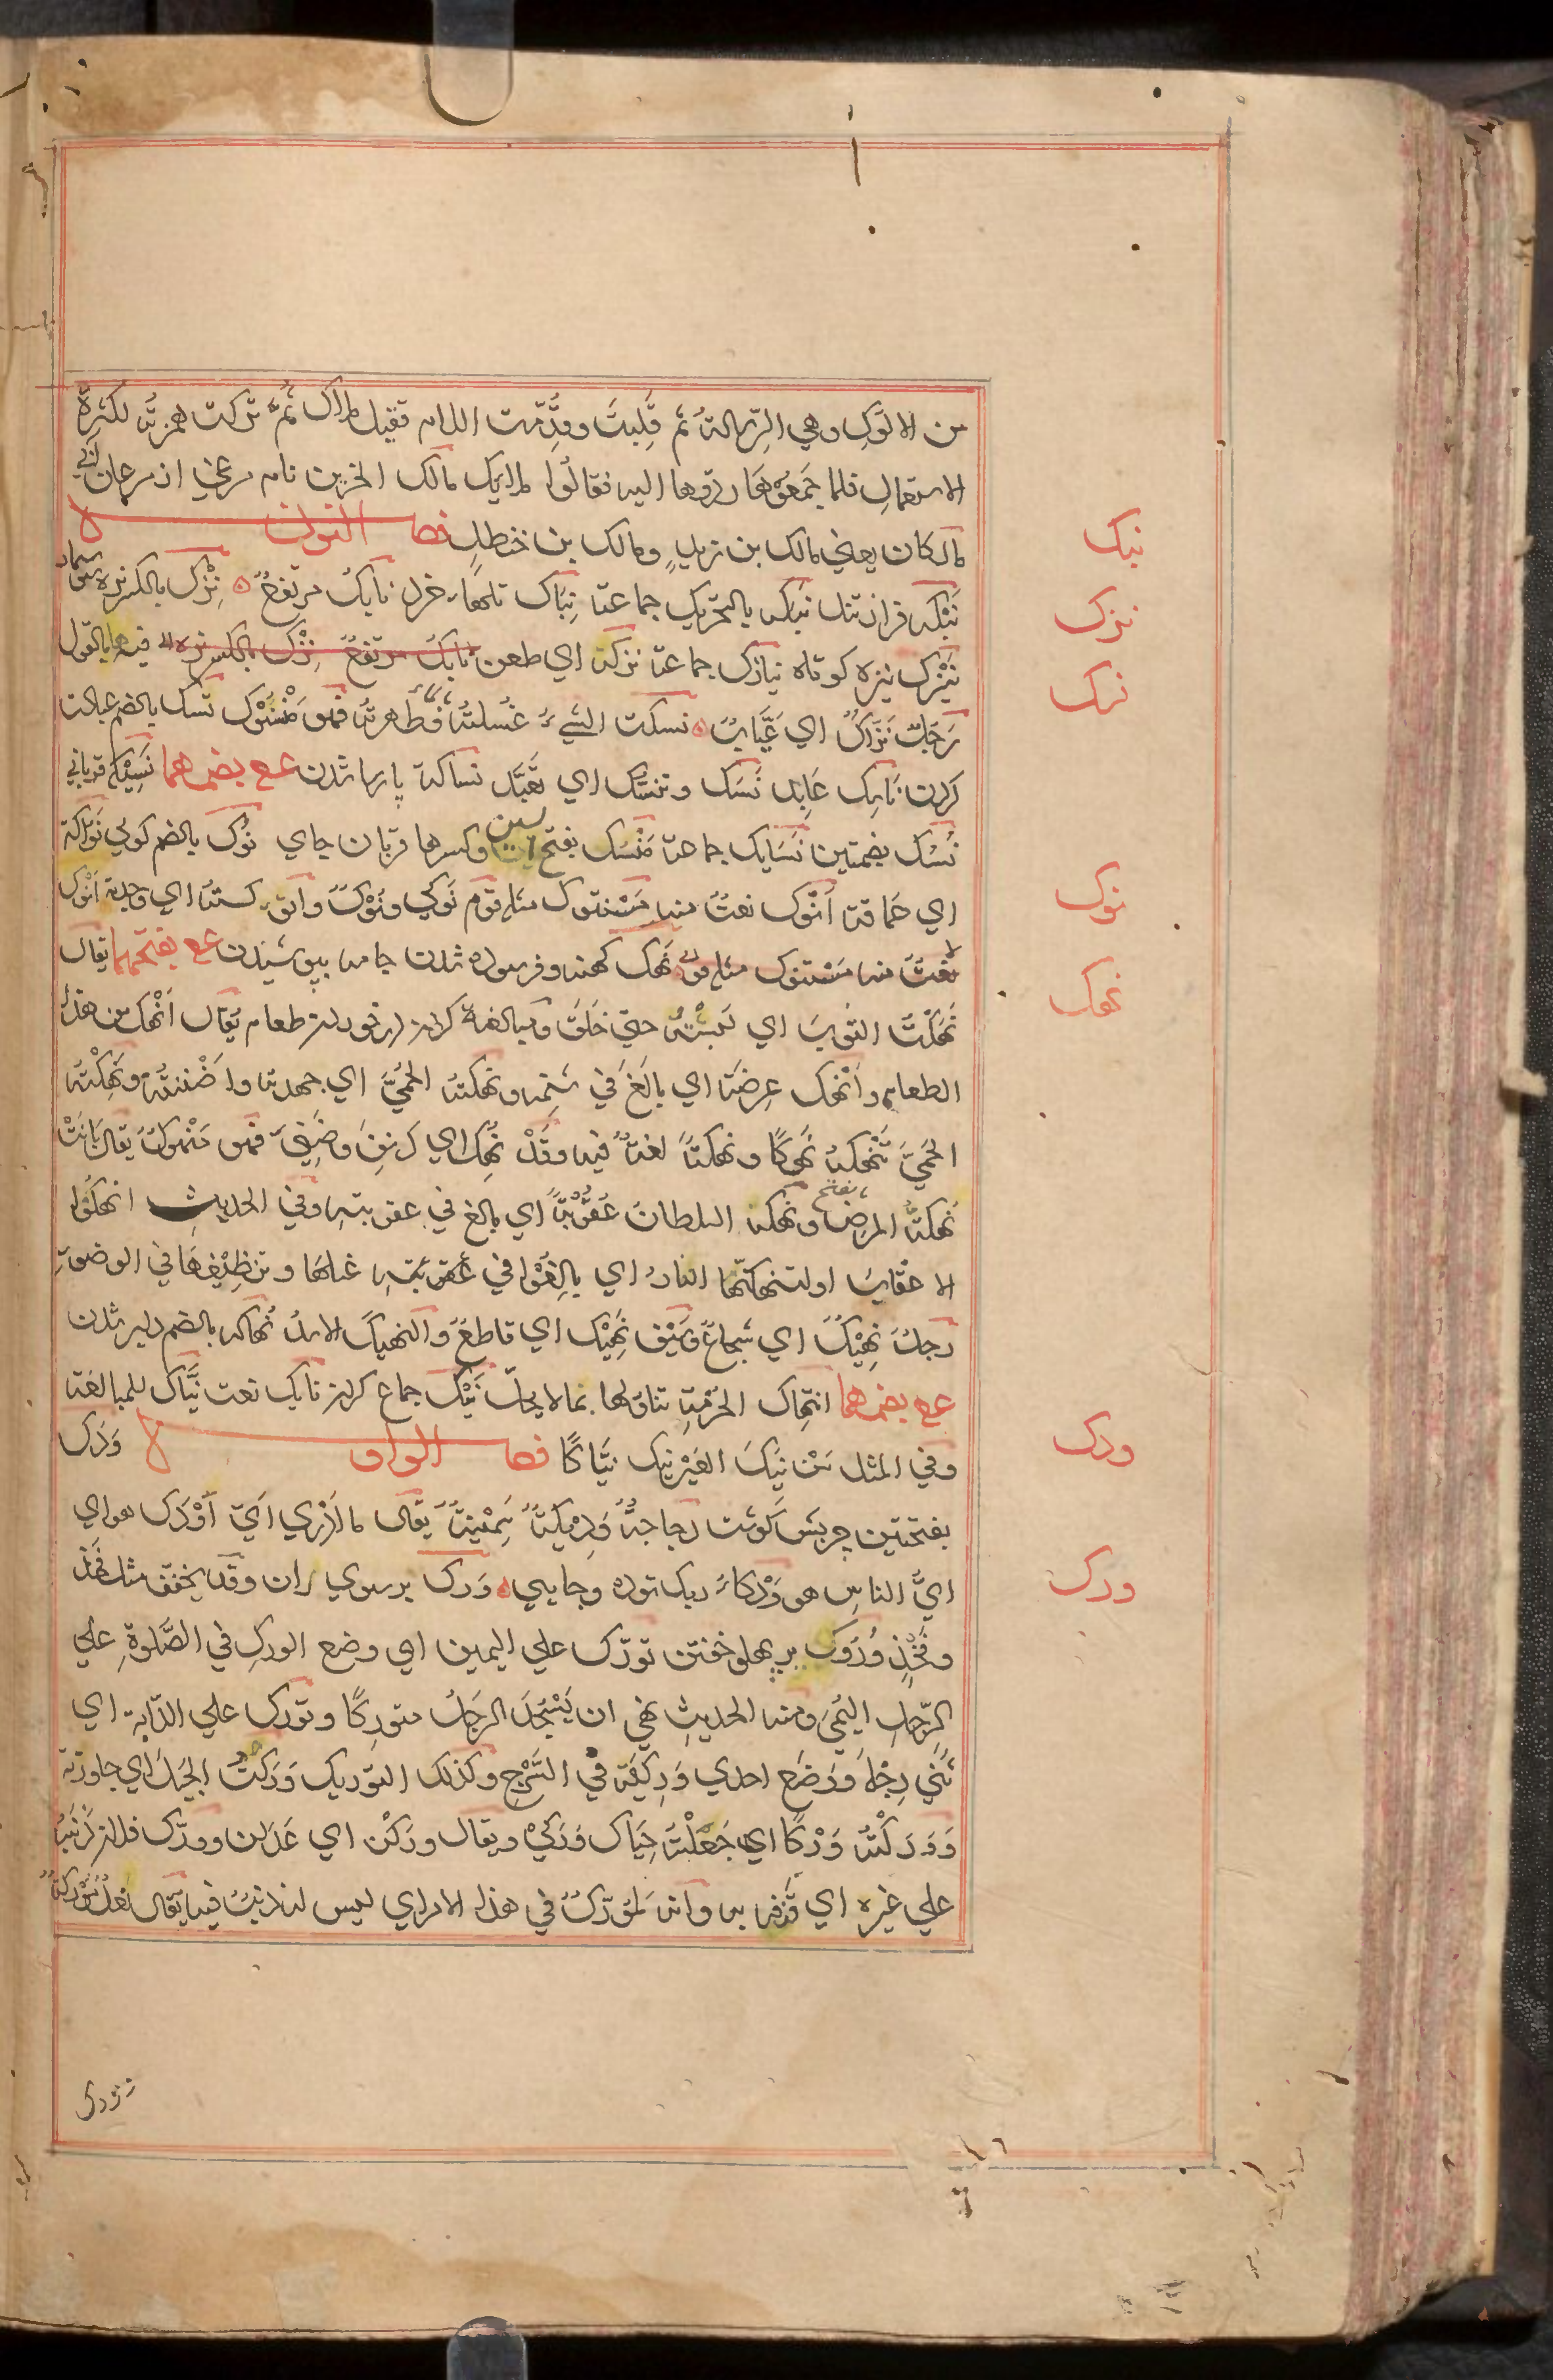 من الالوك وهي الرسالة ثم قلبت وقدمت اللام فقيل ملاك ثم تركت همزته لكثرة
الاستعمال فلما جمعوها ردوها اليه فقالوا ملايك مالك الحزين نام مرغي از مرغان آبي
مالكان يعني مالك بن زيد ومالك بن حنظله فصل النون
نبك
نبكه فراز تل نبك بالتحريك جماعة نباك تلهاء خرد نابك مرتفع نزك بالكسر نره سوسمار
نزك
نيزك نيزه كوتاه نيازك جماعة نزكه اي طعن نابك مرتفع نزك بالكسر نره فيه بالقول
نسك
رجل نزاك اي عياب نسكت الشيء غسلته فطهرته فهو منسوك نسك بالضم عبادت
كردن ناسك عابد نسك وتنسك اي تعبد نساكة پارسا شدن ع بضمهما نسيكه قرباني
نسك بضمتين نسايك جماعة منسك بفتح سين وكسرها قربان جاي نوك بالضم كولي نواكة
نوك
اي حماقة انوك نعت منه مستنوك مثله قوم نوكي ونوك وانوكته اي وجدته انوك
نعت منه مستنوك مثله نهك كهنه وفرسوده شدن جامه بپوشيدن ع بفتحهما يقال
نهك
نهكت الثوب اي لبسته حتي خلق ومبالغة كردن در خوردن طعام يقال انهك من هذا
الطعام وانهك عرضه اي بالغ في شتمه ونهكته الحمي اي جهدته واضنته ونهكته
الحمي تنهكه نهوكا ونهكة لغة فيه وقد نهك اي دنف وضني فهو منهوك يقال بانت
نهكة المرض بفتح ونهكه السلطان عقوبة اي بالغ في عقوبته وفي الحديث انهكوا
الاعقاب او لتنهكنها النار اي بالغوا في غسلها وتنظيفها في الوضوء
رجل نهيك اي شجاع وسيف نهيك اي قاطع والنهيك الاسد نهاكه بالضم دلير شدن
ع بضمهما انتهاك الحرمة تناولها بما لا يحل نيك جماع كردن نايك نعت نياك للمبالغة
وفي المثل من نيك العير نيك نياكا فصل الواو ودك
ودك
بفتحتين چربش گوشت دجاجة وديكة سمينة يقال ما ادري اي اودك هو اي
اي الناس هو ودكاء ريك توده وجايي ورك برسوي ران وقد يخفف مثل فخذ
ورك
وفخذ وروك بر پهلو خفتن تورك علي اليمين اي وضع الورك في الصلوة علي
الرجل اليمني ومنه الحديث نهي ان يسجد الرجل متوركا وتورك علي الدابة اي
ثني رجله ووضع احدي وركيه في السرج وكذلك التوريك وركت الجبل اي جاوزته
ووركته وركا اي جعلته حيال وركي ويقال وركن اي عدلن وورك فلان ذنبه
علي غيره اي قذفه به وانه لمورك في هذا الامر اي ليس له ذنب فيه يقال نعل موركة